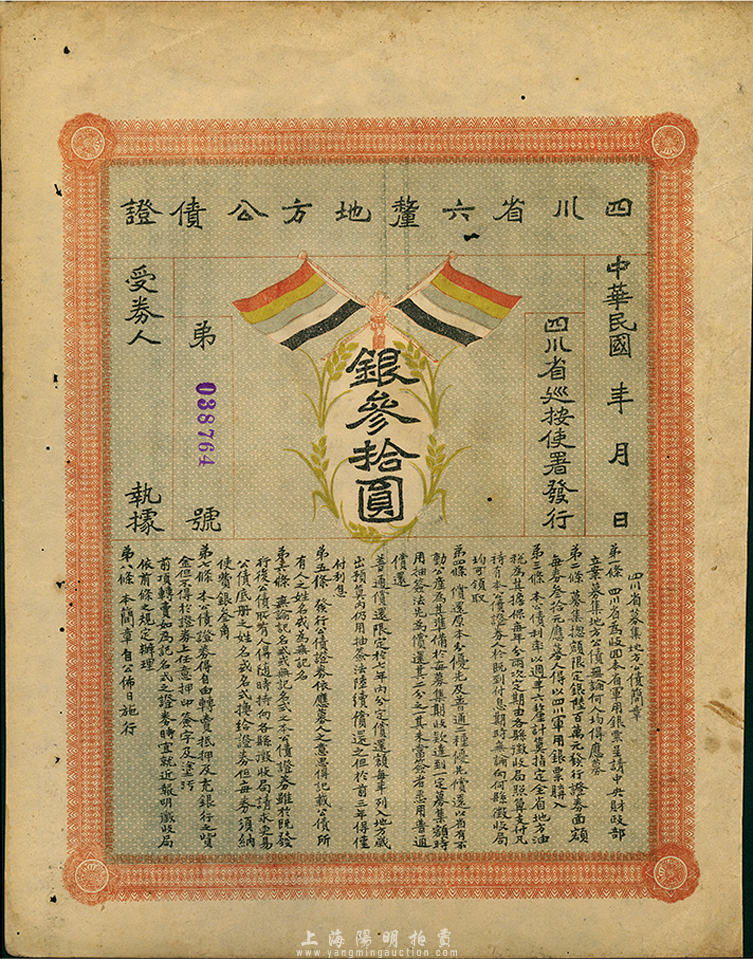 四川省六釐地方公債證
中華民國 年 月 日
四川省巡按使署發行
銀參拾圓
第 038764 號
受券人 執據
四川省募集地方公債簡章
第一條 四川省為收回本省軍用銀票呈請中央財政部
立案募集地方公債無論何人均得應募
第二條 募集總額限定銀陸百萬元發行證券面額
每券叁拾元應募人得以四川軍用銀票購入
第三條 本公債利率以週年六釐計算指定全省地方油
稅為其擔保每年分兩次定期由各縣徵收局照算支付凡
持有本公債證券人於既到付息期時無論向何縣徵收局
均可領取
第四條 償還原本分優先及普通二種優先償還以省有不
動公產為其準備於每募集期收款達到一定募集額時
用抽簽法先為償還其二分之一其未當簽者悉用普通
償還
普通償還限定於七年內分定償還額每年列入地方歲
出預算內仍用抽簽法陸續償還之但於前三年得僅
付利息
第五條 發行公債證券依應募人之意思得記載公債所
有人之姓名或為無記名
第六條 無論記名式或無記名式之本公債證券雖於既發
行後公債取有人得隨時持向各縣徵收局請求更易
公債底冊之姓名或名式換給證券但每券須納
使費銀叁角
第七條 本公債證券得自由轉賣抵押及充銀行之貨
金但不得於證券上任意押印簽字及塗污
前項轉賣如為記名式之證券時宜就近報明徵收局
依前條之規定辦理
第八條 本簡章自公佈日施行
上海陽明拍賣
www.yangmingauction.com